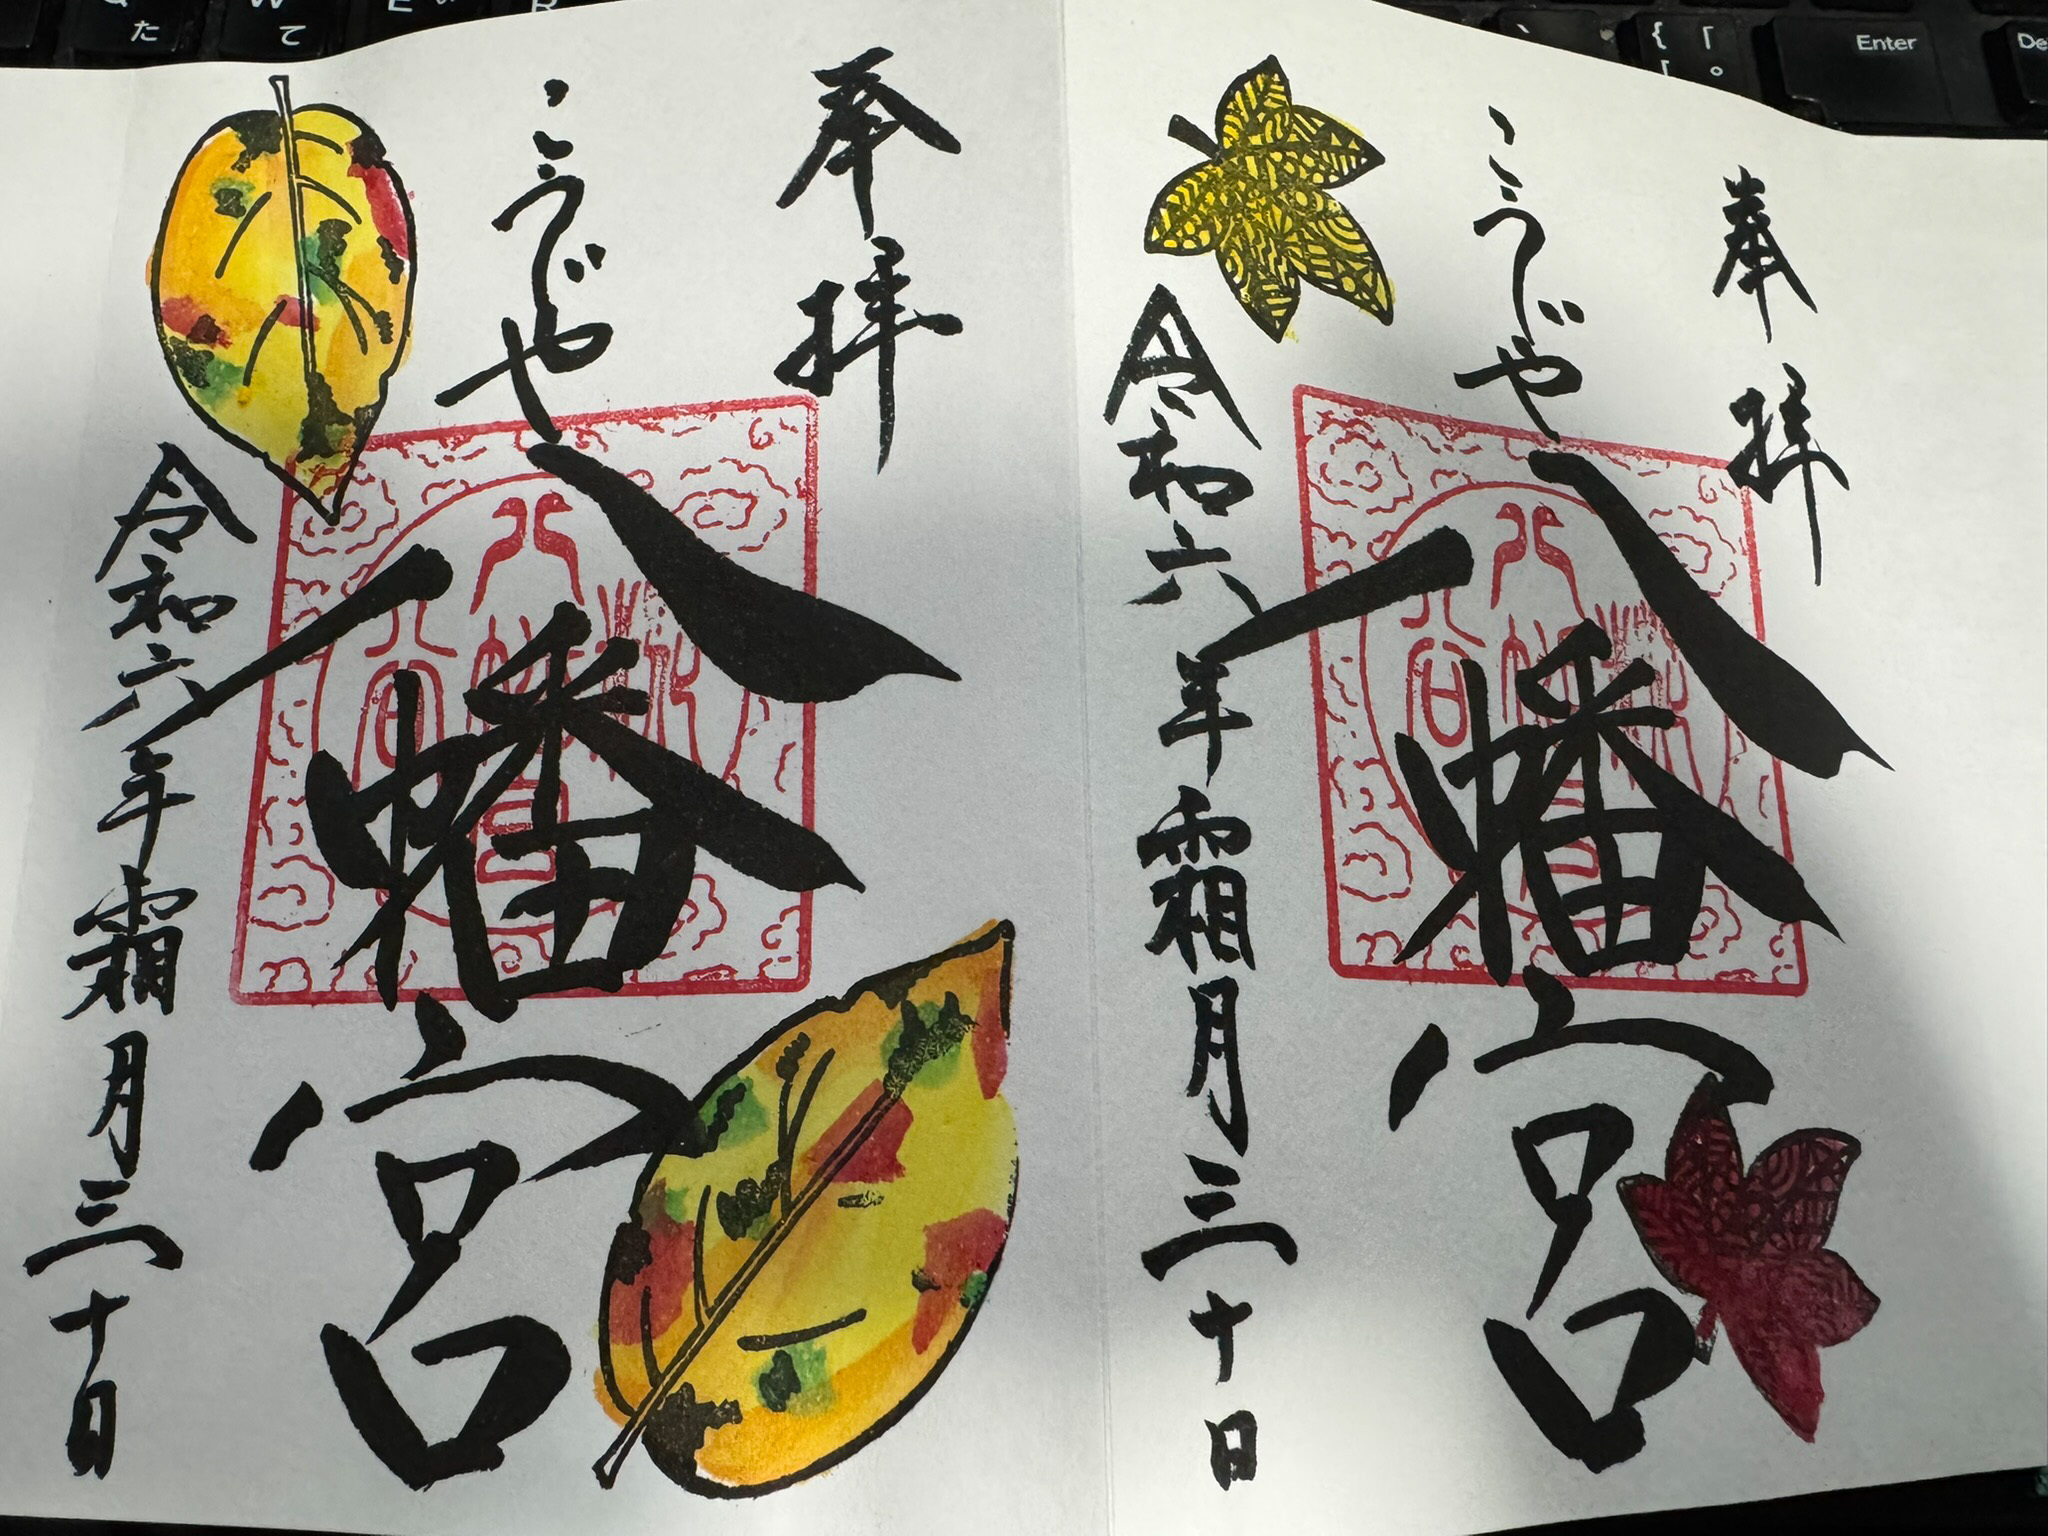 奉拝
こうじや
八幡宮
令和六年霜月三十日
奉拝
こうじや
八幡宮
令和六年霜月三十日
た
W
て
E
R
{
「
[
°
Enter